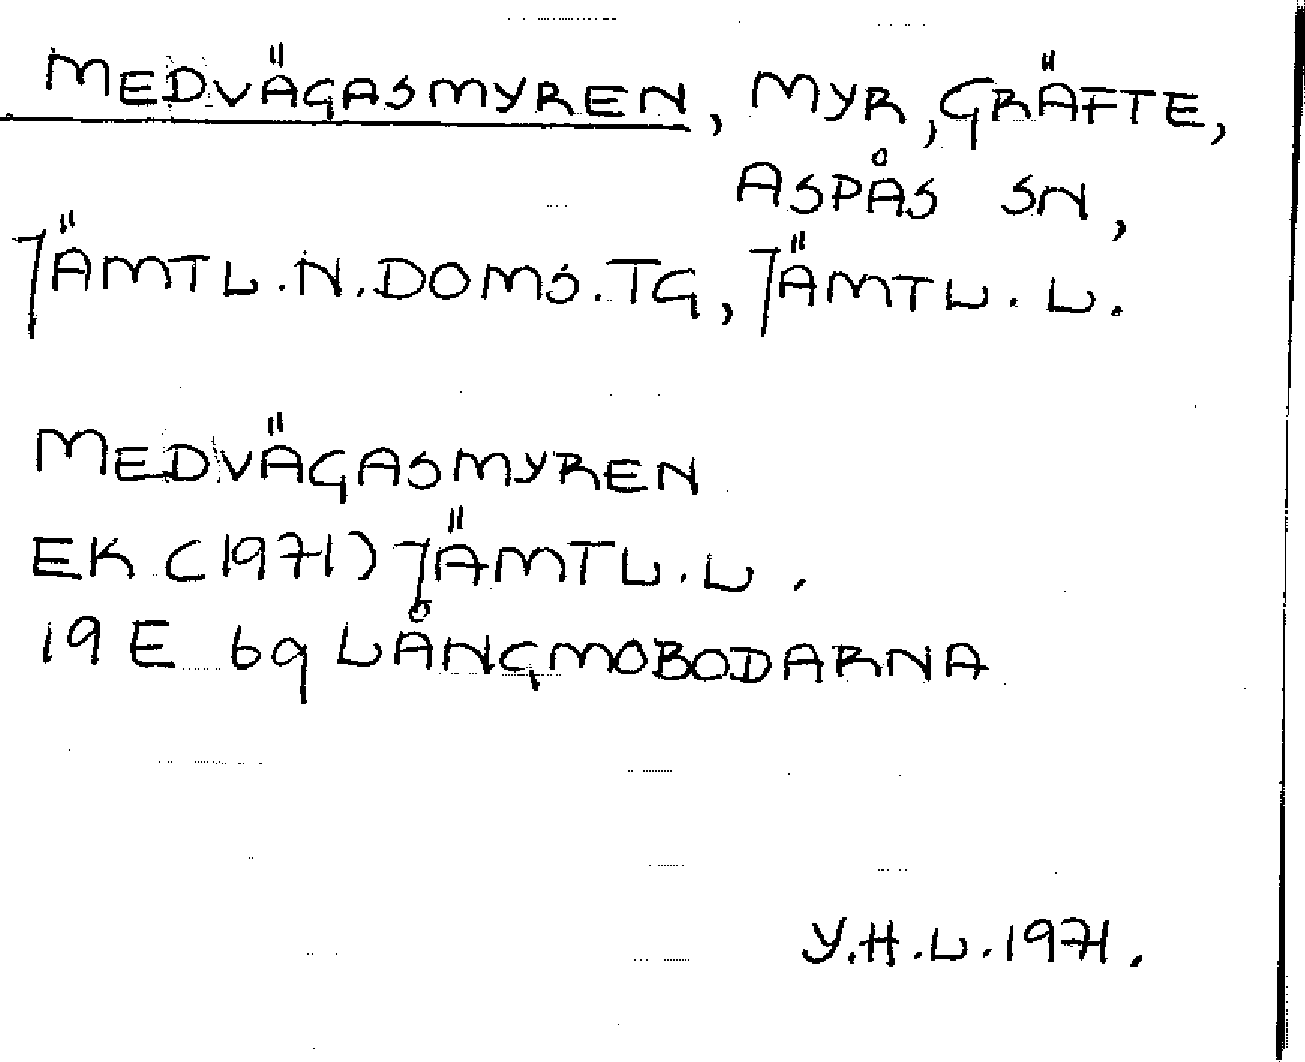 MEDVÄGASMYREN, MYR, GRÄFTE,
ASPÅS SN,
JÄMTL.N.DOMS.TG, JÄMTL.L.
MEDVÄGASMYREN
EK (1971) JÄMTL.L.
19 E 6g LÅNGMOBODARNA
Y.H.L.1971.